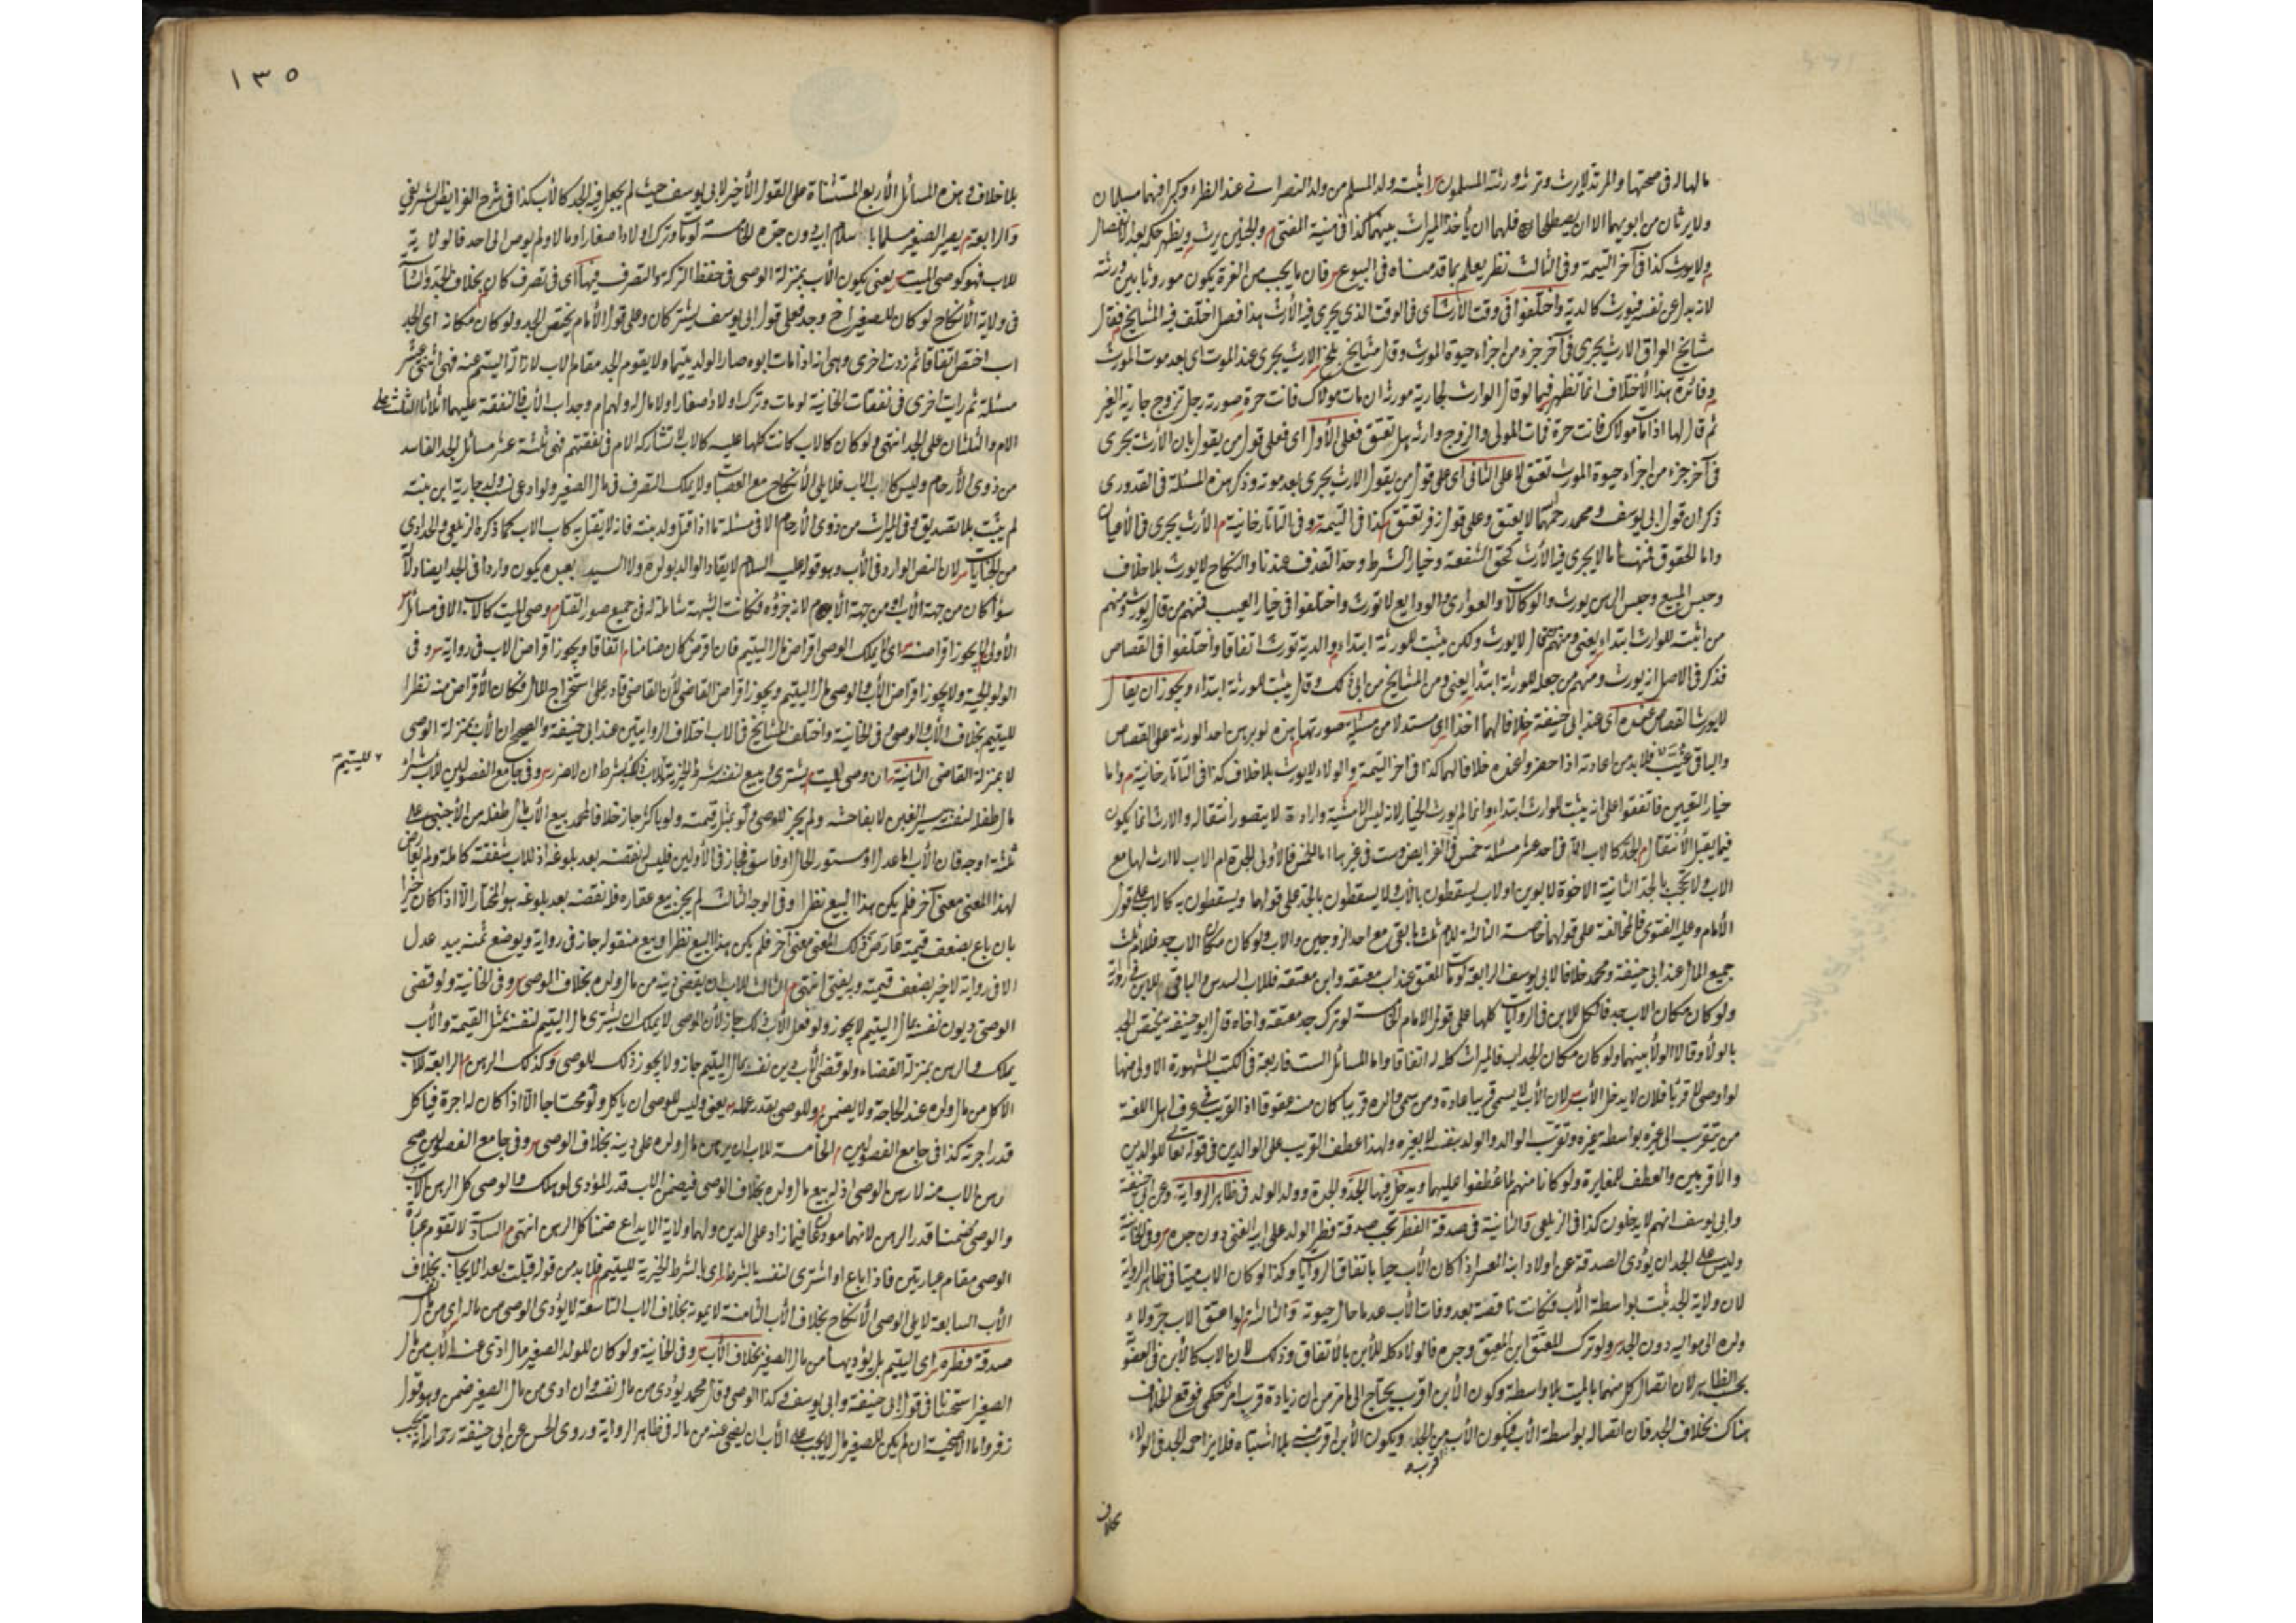 مالها له في صحتها والمرتد لايرث وترثه ورثته المسلمون
ولايرثان من ابويهما الا ان يصطلحا فلهما ان يأخذا الميراث بينهما كذا في منية المفتي والجنين يرث
ولايورث كذا في آخر اليتيمة وفي الثالث نظر يعلم بما قدمناه في البيوع فان ما يجب من الغرة يكون موروثا بين ورثته
لانه بدل عن نفسه فيورث كالدية واختلفوا في وقت الارث اى في الوقت الذى يجرى فيه الأرث هذا فصل اختلف فيه المشايخ فقال
مشايخ العراق الارث يجرى في آخر جزء من اجزاء حيوة المورث وقال مشايخ بلخ الارث يجرى عند الموت اى بعد موت المورث
وفائدة هذا الأختلاف انما تظهر فيما لو قال الوارث لجارية مورثه ان مات مولاك فانت حرة صورته رجل تزوج جارية الغير
ثم قال لها اذا مات مولاك فانت حرة فمات المولى والزوج وارثه هل تعتق فعلى الأول اى فعلى قول من يقول بان الأرث يجرى
في آخر جزء من اجزاء حيوة المورث تعتق لا على الثاني اى على قول من يقول الارث يجرى بعد موته وذكر هذه المسئلة في القدورى
ذكر ان قول ابي يوسف ومحمد رحمهما لا يعتق وعلى قول زفر تعتق كذا في اليتيمة وفي التاتارخانية الأرث يجرى في الأعيان
واما الحقوق فمنها ما لا يجرى فيه الأرث كحق الشفعة وخيار الشرط وحد القذف عندنا والنكاح لايورث بلا خلاف
وحبس المبيع وحبس الرهن يورث والوكالات والعوارى والودايع لا تورث واختلفوا في خيار العيب فمنهم من قال يورث ومنهم
من اثبته للوارث ابتداء يعني ومنهم من قال لايورث ولكن يثبت للورثة ابتداء والدية تورث اتفاقا واختلفوا في القصاص
فذكر في الاصل انه يورث ومنهم من جعله للورثة ابتداء يعني ومن المشايخ من ابى ذلك وقال يثبت للورثة ابتداء ويجوز ان يقال
لايورث القصاص عنده اى عند ابي حنيفة خلافا لهما اخذا اى مستدلا من مسئلة صورتها هذه لو برهن احد الورثة على القصاص
والباقي غيب فلا بد من اعادته اذا حضروا عنده خلافا لهما كذا في آخر اليتيمة والولاء لايورث بلا خلاف كذا في التاتارخانية واما
خيار التعيين فاتفقوا على انه يثبت للوارث ابتداء وانما لم يورث الخيار لانه ليس الا مشية وارادة لا يتصور انتقاله والارث انما يكون
فيما يقبل الأنتقال الجد كالاب الا في احد عشر مسئلة خمس في الفرايض وست في غيرها اما الخمس فالأولى الجدة ام الاب لا ارث لها مع
الاب ولا تحجب بالجد الثانية الاخوة لابوين او لاب يسقطون بالاب ولا يسقطون بالجد على قولهما ويسقطون به كالاب على قول
الأمام وعليه الفتوى فالمخالفة على قولهما خاصة الثالثة للام ثلث ما بقي مع احد الزوجين والاب ولو كان مكان الاب جد فللام ثلث
جميع المال عند ابي حنيفة ومحمد خلافا لابي يوسف الرابعة لو مات المعتق عن اب معتقه وابن معتقه فللاب السدس والباقي للابن في رواية
ولو كان مكان الاب جد فالكل للابن في الروايات كلها على قول الامام الخامسة لو ترك جد معتقه واخاه قال ابو حنيفة يختص الجد
بالولاء وقالا الولاء بينهما ولو كان مكان الجد اب فالميراث كله له اتفاقا واما المسائل الست فاربعة في الكتب المشهورة الاولى منها
لو اوصى لاقرباء فلان لا يدخل الأب لان الأب لا يسمى قريبا عادة ومن سمى والده قريبا كان منه عقوقا اذ القريب في عرف اهل اللغة
من يتقرب الى غيره بواسطة غيره وتقرب الوالد والولد بنفسه لا بغيره ولهذا عطف القريب على الوالدين في قوله تعالى للوالدين
والأقربين والعطف للمغايرة ولو كانا منهم لما عطفوا عليهما ويدخل فيها الجد والجدة وولد الولد في ظاهر الرواية وعن ابي حنيفة
وابي يوسف انهم لا يدخلون كذا في الزيلعي والثانية في صدقة الفطر تجب صدقة فطر الولد على ابيه الغني دون جده وفي الخانية
وليس على الجد ان يؤدى الصدقة عن اولاد ابنه المعسر اذا كان الأب حيا باتفاق الروايات وكذا لو كان الاب ميتا في ظاهر الرواية
لان ولاية الجد ثبت بواسطة الأب فكانت ناقصة بعد وفات الأب عدما حال حيوته والثالثة لو اعتق الاب جر ولاء
ولده الى مواليه دون الجد ولو ترك المعتق ابن المعتق وجده فالولاء كله للأبن بالأتفاق وذلك لان الاب كالأبن في العصوبة
بحسب الظاهر لان اتصال كل منهما بالميت بلا واسطة وكون الأبن اقرب يحتاج الى ما مر من ان زيادة قرب امر حكمي فوقع الخلاف
هناك بخلاف الجد فان اتصاله بواسطة الأب فيكون الأب من الجد ويكون الأبن اقرب منه بلا اشتباه فلا يزاحمه الجد في الولاء
بخلاف
١٣٥
بلا خلاف في هذه المسائل الأربع المستثناة على القول الأخير لابي يوسف حيث لم يجعل فيه الجد كالأب كذا في شرح الفرايض الشريفي
والرابعة يصير الصغير مسلما باسلام ابيه دون جده الخامسة لو مات وترك اولادا صغارا ومالا ولم يوص الى احد فالولاية
للاب فهو كوصي الميت يعني يكون الأب بمنزلة الوصي في حفظ التركة والتصرف فيها اى في تصرف كان بخلاف الجد
في ولاية الأنكاح لو كان للصغير اخ وجد فعلى قول ابي يوسف يشتركان وعلى قول الأمام يختص الجد ولو كان مكانه اى الجد
اب اختص اتفاقا ثم زدت اخرى وهى انه اذا مات ابوه صار الولد يتيما ولا يقوم الجد مقام الاب لازالة اليتم عنه فهى اثنى عشر
مسئلة ثم رايت اخرى في نفقات الخانية لو مات وترك اولادا صغارا ولا مال له ولهم ام وجد اب الأب فالنفقة عليهما اثلاثا الثلث على
الام والثلثان على الجد انتهى ولو كان كالاب كانت كلها عليه كالاب لا تشاركه الام في نفقتهم فهى ثلثة عشر مسائل الجد الفاسد
من ذوى الأرحام وليس كاب الاب فلا يلي الأنكاح مع العصبات ولا يملك التصرف في مال الصغير ولو ادعى نسب ولد جارية ابن بنته
لم يثبت بلا تصديق وفي الميراث من ذوى الأرحام الا في مسئلة ما اذا قتل ولد بنته فانه لا يقتل به كاب الاب كما ذكره الزيلعي والحدادى
من الجنايات لان النص الوارد في الأب وهو قوله عليه السلام لا يقاد الوالد بولده ولا السيد بعبده يكون واردا في الجد ايضا
سواء كان من جهة الأب او من جهة الأم لانه جزؤه فكانت الشبهة شاملة له في جميع صور القتل وصى الميت كالاب الا في مسائل
الأولى لا يجوز اقراضه اى لا يملك الوصى اقراض مال اليتيم فان اقرض كان ضامنا اتفاقا ويجوز اقراض الاب في رواية وفي
الولوالجية ولا يجوز اقراض الأب والوصى مال اليتيم ويجوز اقراض القاضى لأن القاضى قادر على استخراج المال فكان الأقراض منه نظرا
لليتيم بخلاف الأب والوصى وفي الخانية واختلف المشايخ في الاب اختلاف الروايتين عند ابي حنيفة والصحيح ان الأب بمنزلة الوصى
لا بمنزلة القاضى الثانية ان وصى الميت يشترى ويبيع لنفسه بشرط الخيرية لليتيم والاب له ذلك بشرط ان لا ضرر وفي جامع الفصولين للاب شراء
مال طفله لنفسه بيسير الغبن لا بفاحشه ولم يجز للوصى ولو بمثل قيمته ولو باكثر جاز خلافا لمحمد بيع الأب مال طفله من الأجنبى على
ثلثة اوجه فان الأب اما عدل او مستور الحال او فاسق فجاز في الأولين فليس له نقضه بعد بلوغه اذ للاب شفقة كاملة ولم يعارض
لهذا المعنى معنى آخر فلم يكن هذا البيع نظرا وفي الوجه الثالث لم يجز بيع عقاره فله نقضه بعد بلوغه هو المختار الا اذا كان خيرا
بان باع بضعف قيمته فعارض ذلك المعنى معنى آخر فلم يكن هذا البيع نظرا وبيع منقوله جاز في رواية ويوضع ثمنه بيد عدل
الا في رواية لا خير بضعف قيمته وبه يفتى انتهى الثالث للاب ان يقضى دينه من مال ولده بخلاف الوصى وفي الخانية ولو قضى
الوصى ديون نفسه بمال اليتيم لا يجوز ولو فعل الأب ذلك جاز لأن الوصى لا يملك ان يشترى مال اليتيم لنفسه بمثل القيمة والأب
يملك والرهن بمنزلة القضاء ولو قضى الأب دين نفسه بمال اليتيم جاز ولا يجوز ذلك للوصى وكذلك الرهن الرابعة للاب
الاكل من مال ولده عند الحاجة ولا يضمن وللوصى بقدر عمله يعني وليس للوصى ان ياكل ولو محتاجا الا اذا كان له اجرة فياكل
قدر اجرته كذا في جامع الفصولين الخامسة للاب ان يرهن مال ولده على دينه بخلاف الوصى وفي جامع الفصولين صح
رهن الاب منه لا رهن الوصى اذ له بيع مال ولده بخلاف الوصى فيضمن الاب قدر المؤدى لو هلك والوصى كل الرهن
والوصى ضمنا قدر الرهن لانهما مودعان فيما زاد على الدين ولهما ولاية الايداع ضمنا كل الرهن انتهى السادسة لا تقوم عبارة
الوصى مقام عبارتين فاذا باع او اشترى لنفسه بالشرط اى بالشرط الخيرية لليتيم فلا بد من قوله قبلت بعد الايجاب بخلاف
الأب السابعة لا يلي الوصى الأنكاح بخلاف الأب الثامنة لا يمونه بخلاف الاب التاسعة لا يؤدى الوصى من ماله اى من مال نفسه
صدقة فطره اى اليتيم بل يؤديها من مال الصغير بخلاف الأب وفي الخانية ولو كان للولد الصغير مال ادى عنه الأب من مال
الصغير استحسانا في قول ابي حنيفة وابي يوسف وكذا الوصى وقال محمد يؤدى من مال نفسه وان ادى من مال الصغير ضمن وهو قول
زفر واما الأضحية ان لم يكن للصغير مال لا يجب على الأب ان يضحى عنه من ماله في ظاهر الرواية وروى الحسن عن ابي حنيفة رحمه الله انه يجب